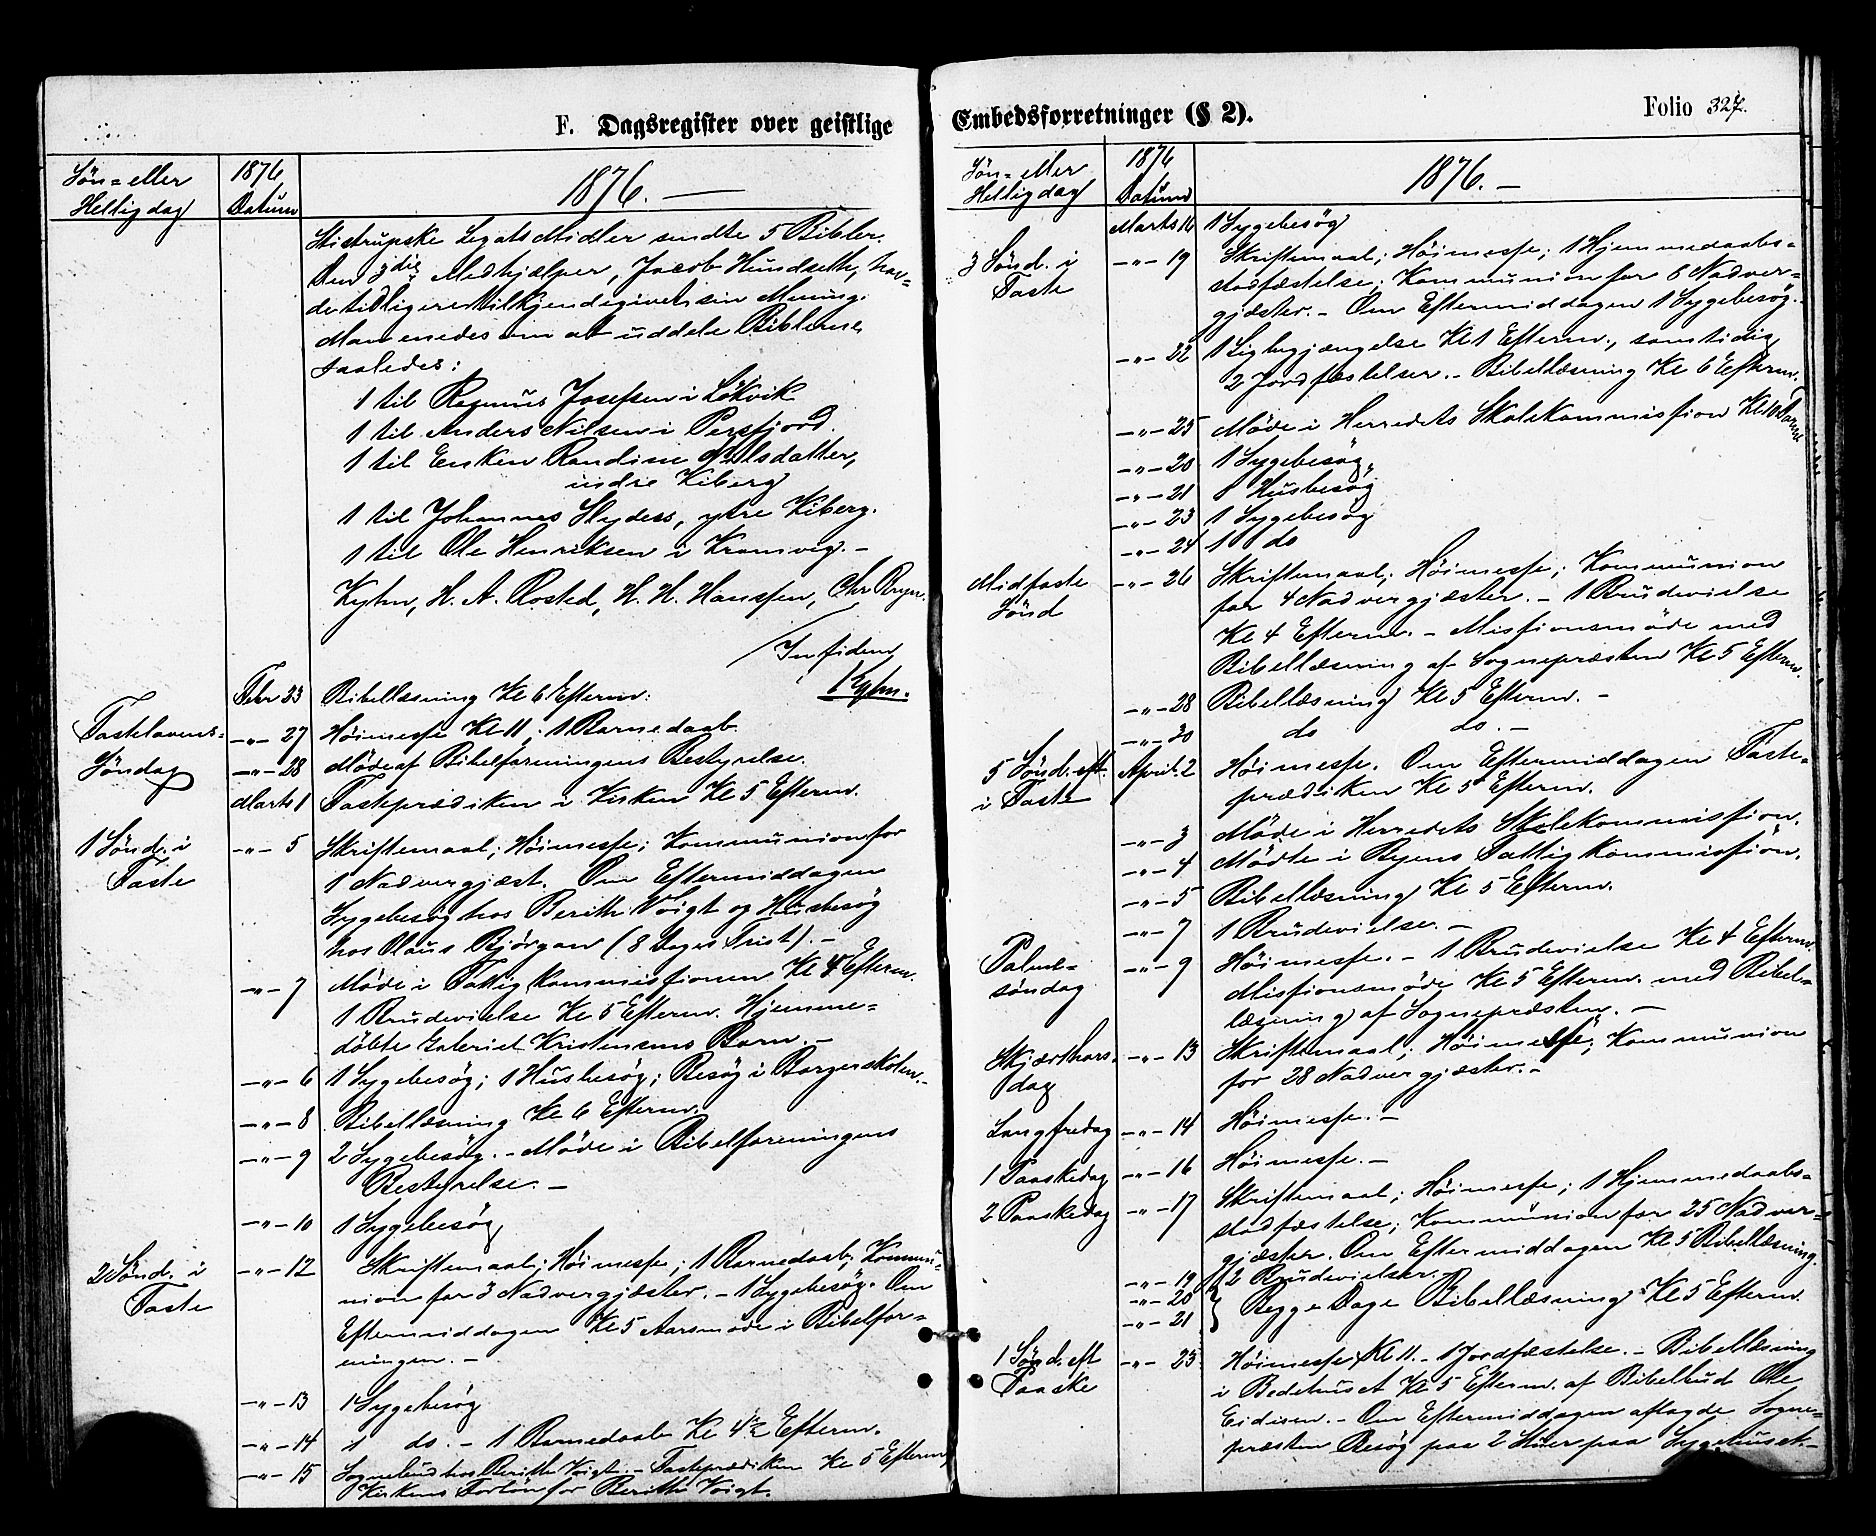 F. Dagsregister over geistlige
Søn- eller
Hellig dag
1876
Datum
1876. —
Legats Midler sendte 5 Bibler.
Den 3die Medhjælper, Jacob Hundseth, hav-
de tidligere tilkjendegivet sin Mening.
Man enedes om at uddele Biblerne
saaledes:
1 til Rasmus Josefsen i Løkvik
1 til Anders Nilsen i Persfjord.
1 til Enken Randine Olsdatter,
indre Kiberg
1 til Johannes, ytre Kiberg.
1 til Ole Henriksen i Kramvig. —
Kyhn, H. A. Rosted, H. H. Hanssen, Chr Bryn.
In fidem
Kyhn.
Febr 23 Bibellæsning Kl 6 Efterm:
Fastelavens- -"- 27 Høimesse Kl 11; 1 Barnedaab
Søndag -"- 28 Møde af Bibelforeningens Bestyrelse.
Marts 1 Fasteprædiken i Kirken Kl 5 Efterm.
1 Sønd. i -"- 5 Skriftemaal; Høimesse; Kommunion for
Faste 1 Nadvergjæst. Om Eftermiddagen
Sygebesøg hos Berith Voigt og Husbesøg
hos Claus Bjørgan (8 Dages Frist). —
-"- 7 Møde i Fattigkommissionen Kl 4 Efterm.
1 Brudevielse Kl 5 Efterm. Hjemme-
døbte Gabriel Kristensens Barn. —
-"- 6 1 Sygebesøg; 1 Husbesøg; Besøg i Borgerskolen. -
-"- 8 Bibellæsning Kl 6 Efterm.
-"- 9 2 Sygebesøg. - Møde i Bibelforeningens
Bestyrelse. —
-"- 10 1 Sygebesøg
2 Sønd. i -"- 12 Skriftemaal; Høimesse; 1 Barnedaab; Kommu-
Faste nion for 3 Nadvergjæster. - 1 Sygebesøg. Om
Eftermiddagen Kl 5 Aarsmøde i Bibelfor-
eningen. —
-"- 13 1 Sygebesøg
-"- 14 1 do. - 1 Barnedaab Kl 4½ Efterm.
-"- 15 Sognebud hos Berith Voigt. - Fasteprædiken Kl 5 Efterm.
Kirkens Forbøn for Berith Voigt.
Embedsforretninger (§ 2).
Folio 327.
Søn- eller
Hellig dag
1876
Datum
1876. —
Marts 16 1 Sygebesøg
3 Sønd. i -"- 19 Skriftemaal; Høimesse; 1 Hjemmedaabs-
Faste stadfæstelse; Kommunion for 6 Nadver-
gjæster. - Om Eftermiddagen 1 Sygebesøg.
-"- 22 1 Ligbegjængelse Kl 1 Efterm., samtidig
2 Jordfæstelser. - Bibellæsning Kl 6 Efterm.
-"- 25 Møde i Herredets Skolekommission Kl 10 Form
-"- 20 1 Sygebesøg
-"- 21 1 Husbesøg
-"- 23 1 Sygebesøg
-"- 24 1 do
Midfaste -"- 26 Skriftemaal; Høimesse; Kommunion
Sønd for 4 Nadvergjæster. - 1 Brudevielse
Kl 4 Efterm. - Missionsmøde med
Bibellæsning af Sognepræsten Kl 5 Efterm.
-"- 28 Bibellæsning Kl 5 Efterm. -
-"- 30 do do. -
5 Sønd. April 2 Høimesse. Om Eftermiddagen Faste-
i Faste prædiken Kl 5 Efterm.
-"- 3 Møde i Herredets Skolekommission.
-"- 4 Mødte i Byens Fattigkommission.
-"- 5 Bibellæsning Kl 5 Efterm.
-"- 7 1 Brudevielse. -
Palme- -"- 9 Høimesse. - 1 Brudevielse Kl 4 Efterm.
søndag Missionsmøde Kl 5 Efterm. med Bibel-
læsning af Sognepræsten. —
Skjærthors- -"- 13 Skriftemaal; Høimesse; Kommunion
dag for 28 Nadvergjæster. -
Langfredag -"- 14 Høimesse. -
1 Paaskedag -"- 16 Høimesse. -
2 Paaskedag -"- 17 Skriftemaal; Høimesse; 1 Hjemmedaabs-
stadfæstelse; Kommunion for 25 Nadver-
gjæster. Om Eftermiddagen Kl 5 Bibellæsning.
-"- 19 2 Brudevielser. -
-"- 20
-"- 21 } Begge Dage Bibellæsning Kl 5 Efterm.
1 Sønd. eft -"- 23 Høimesse Kl 11. - 1 Jordfæstelse. - Bibellæsning
Paaske i Bedehuset Kl 5 Efterm. af Bibelbud Ole
Eidisen. - Om Eftermiddagen aflagde Sogne-
præsten Besøg paa 2 Stuer paa Sygehuset. -